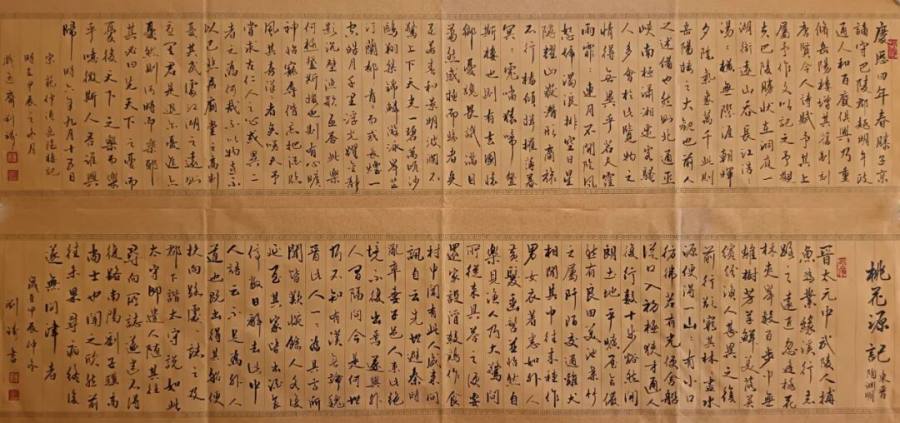 慶曆四年春滕子京
謫守巴陵郡越明年政
通人和百廢俱興乃重
修岳陽樓增其舊制刻
唐賢今人詩賦于其上
屬予作文以記之予觀
夫巴陵勝狀在洞庭一
湖銜遠山吞長江浩浩
湯湯橫無際涯朝暉
夕陰氣象萬千此則
岳陽樓之大觀也前人
之述備也然則北通巫
峽南極瀟湘遷客騷
人多會於此覽物之
情得無異乎若夫霪
雨霏霏連月不開陰風
怒號濁浪排空日星
隱曜山岳潛形商旅
不行檣傾楫摧薄暮
冥冥虎嘯猿啼登
斯樓也則有去國懷
鄉憂讒畏譏滿目
蕭然感極而悲者矣
至若春和景明波瀾不
驚上下天光一碧萬頃沙
鷗翔集錦鱗游泳岸芷
汀蘭郁郁青青而或長煙一
空皓月千里浮光躍金靜
影沉璧漁歌互答此樂
何極登斯樓也則有心曠
神怡寵辱偕忘把酒臨
風其喜洋洋者矣嗟夫予
嘗求古仁人之心或異二
者之為何哉不以物喜不
以己悲居廟堂之高則
憂其民處江湖之遠則
憂其君是進亦憂退亦
憂然則何時而樂耶
其必曰先天下之憂而
憂後天下之樂而樂
乎噫微斯人吾誰與
歸時六年九月十五日
宋范仲淹岳陽樓記
時在甲辰之冬月
桃花源記
東晉
陶淵明
晉太元中武陵人捕
魚為業緣溪行忘
路之遠近忽逢桃花
林夾岸數百步中無
雜樹芳草鮮美落英
繽紛漁人甚異之復
前行欲窮其林林盡水
源便得一山山有小口
彷彿若有光便舍船
從口入初極狹才通人
復行數十步豁然開
朗土地平曠屋舍儼
然有良田美池桑竹
之屬阡陌交通雞犬
相聞其中往來種作
男女衣著悉如外人
黃髮垂髫並怡然自
樂見漁人乃大驚問
所從來具答之便要
還家設酒殺雞作食
村中聞有此人咸來問
訊自云先世避秦時
亂率妻子邑人來此絕
境不復出焉遂與外
人間隔問今是何世
乃不知有漢無論魏
晉此人一一為具言所
聞皆歎惋餘人各復
延至其家皆出酒食
停數日辭去此中
人語云不足為外人
道也既出得其船便
扶向路處處誌之及
郡下詣太守說如此
太守即遣人隨其往
尋向所誌遂迷不復得
路南陽劉子驥高
尚士也聞之欣然規
往未果尋病終後
遂無問津者
歲在甲辰仲冬